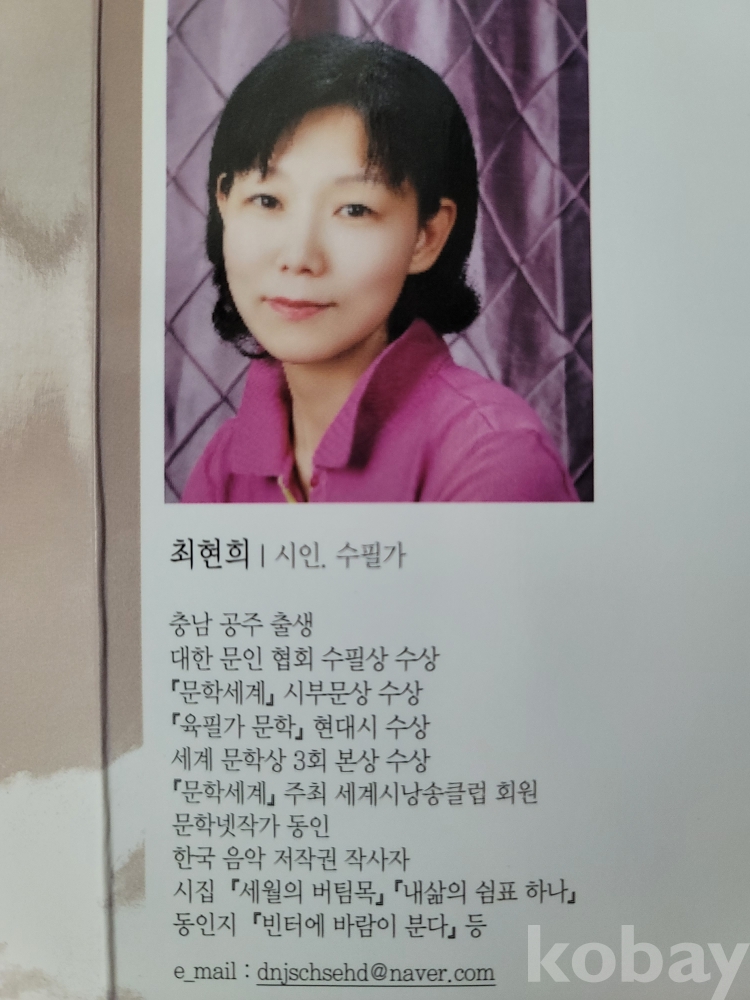 최현희 | 시인. 수필가
충남 공주 출생
대한 문인 협회 수필상 수상
『문학세계』 시부문상 수상
『육필가 문학』 현대시 수상
세계 문학상 3회 본상 수상
『문학세계』 주최 세계시낭송클럽 회원
문학넷작가 동인
한국 음악 저작권 작사자
시집 『세월의 버팀목』『내삶의 쉼표 하나』
동인지 『빈터에 바람이 분다』 등
e_mail : dnjschsehd@naver.com
kobay